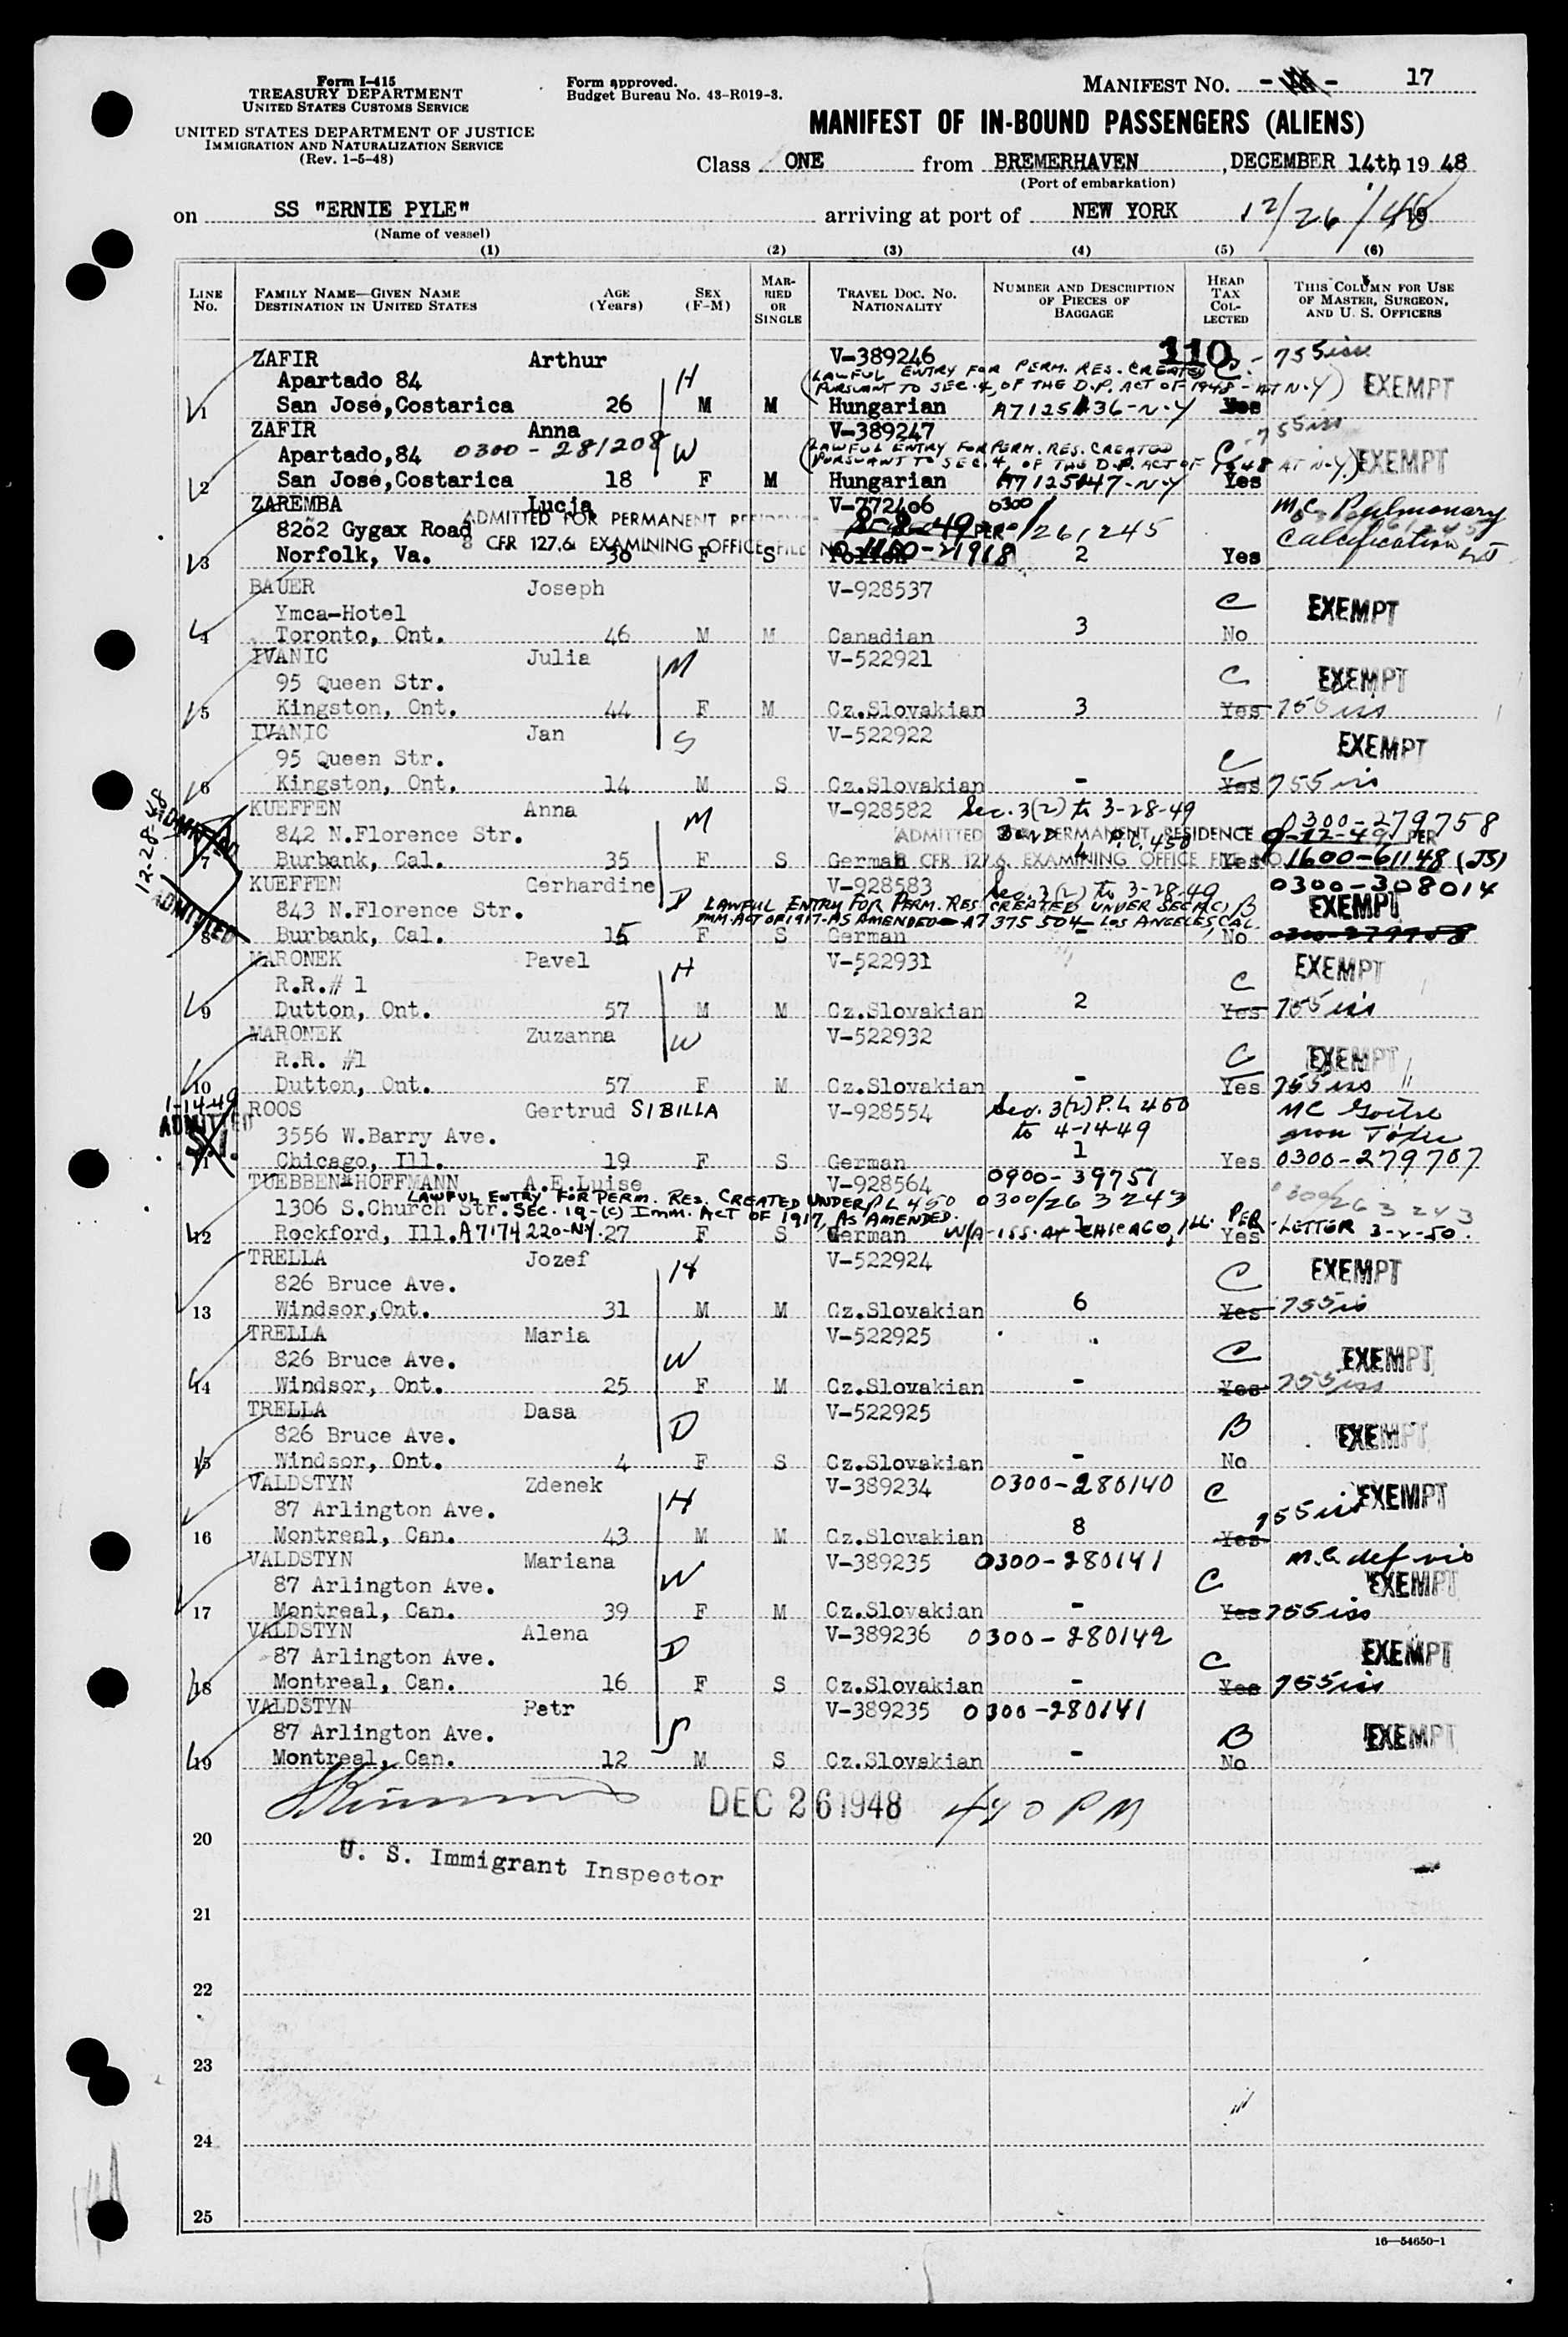 Form I-415
TREASURY DEPARTMENT
UNITED STATES CUSTOMS SERVICE
UNITED STATES DEPARTMENT OF JUSTICE
IMMIGRATION AND NATURALIZATION SERVICE
(Rev. 1-5-48)
Form approved.
Budget Bureau No. 43-R019-3.
MANIFEST NO. - - 17
MANIFEST OF IN-BOUND PASSENGERS (ALIENS)
Class ONE from BREMERHAVEN, DECEMBER 14th, 19 48
(Port of embarkation)
on SS "ERNIE PYLE" arriving at port of NEW YORK 12/26/48 19
(Name of vessel)
(1) (2) (3) (4) (5) (6)
LINE No. FAMILY NAME—GIVEN NAME DESTINATION IN UNITED STATES AGE (Years) SEX (F-M) MARRIED OR SINGLE TRAVEL DOC. NO. NATIONALITY NUMBER AND DESCRIPTION OF PIECES OF BAGGAGE HEAD TAX COLLECTED THIS COLUMN FOR USE OF MASTER, SURGEON, AND U. S. OFFICERS
ZAFIR Arthur V-389246 110 C - 755 iss
Apartado 84 H (LAWFUL ENTRY FOR PERM. RES. CREATED
PURSUANT TO SEC. 4, OF THE D.P. ACT OF 1948 - AT N.Y) EXEMPT
1 San José,Costarica 26 M M Hungarian A7125436-N.Y Yes
ZAFIR Anna V-389247 755 iss
Apartado,84 0300-281208 W (LAWFUL ENTRY FOR PERM. RES. CREATED C
PURSUANT TO SEC. 4, OF THE D.P. ACT OF 1948 AT N.Y.) EXEMPT
2 San José,Costarica 18 F M Hungarian A7125447-N.Y Yes
ZAREMBA Lucja V-772406 0300/261245 MC Pulmonary
8262 Gygax Road ADMITTED FOR PERMANENT RESIDENCE 8-8-49 PER Calcification
8 CFR 127.6 EXAMINING OFFICE FILE NO. 1160-21918
3 Norfolk, Va. 30 F S Polish 2 Yes
BAUER Joseph V-928537
Ymca-Hotel C EXEMPT
4 Toronto, Ont. 46 M M Canadian 3 No
IVANIC Julia M V-522921
95 Queen Str. C EXEMPT
5 Kingston, Ont. 44 F M Cz.Slovakian 3 Yes 755 iss
IVANIC Jan S V-522922 EXEMPT
95 Queen Str. C
6 Kingston, Ont. 14 M S Cz.Slovakian - Yes 755 iss
12-28-48 ADMITTED
KUEFFEN Anna M V-928582 Sec. 3(2) to 3-28-49 0300-279758
842 N.Florence Str. ADMITTED FOR PERMANENT RESIDENCE 9-12-49 PER
P.L. 450
8 CFR 127.6. EXAMINING OFFICE FILE NO. 1600-61148 (JS)
7 Burbank, Cal. 35 F S German Yes
ADMITTED
KUEFFEN Gerhardine D V-928583 Sec. 3(2) to 3-28-49 0300-308014
843 N.Florence Str. LAWFUL ENTRY FOR PERM. RES. CREATED UNDER SEC 19(C) B EXEMPT
IMM. ACT OF 1917-AS AMENDED-A7375504-LOS ANGELES, CAL.
8 Burbank, Cal. 15 F S German - No 0300-279758
MARONEK Pavel H V-522931 EXEMPT
R.R.# 1 C
9 Dutton, Ont. 57 M M Cz.Slovakian 2 Yes 755 iss
MARONEK Zuzanna W V-522932
R.R. #1 C EXEMPT
10 Dutton, Ont. 57 F M Cz.Slovakian - Yes 755 iss
1-14-49 ADMITTED S.I.
ROOS Gertrud SIBILLA V-928554 Sec. 3(2) P.L 450 MC Goitre
3556 W.Barry Ave. to 4-14-49 non Toxic
11 Chicago, Ill. 19 F S German 1 Yes 0300-279707
TUEBBEN-HOFFMANN A.E.Luise V-928564 0900-39751
LAWFUL ENTRY FOR PERM. RES. CREATED UNDER P L 450 0300/263243 0300/263243
1306 S.Church Str. SEC. 19-(C) IMM. ACT OF 1917, AS AMENDED.
12 Rockford, Ill. A7174220-N.Y. 27 F S German W/A-ISS. AT CHICAGO, ILL. PER LETTER 3-2-50. Yes
TRELLA Jozef H V-522924
826 Bruce Ave. C EXEMPT
13 Windsor,Ont. 31 M M Cz.Slovakian 6 Yes 755 iss
TRELLA Maria V-522925
826 Bruce Ave. W C EXEMPT
14 Windsor, Ont. 25 F M Cz.Slovakian - Yes 755 iss
TRELLA Dasa V-522925
826 Bruce Ave. D B EXEMPT
15 Windsor, Ont. 4 F S Cz.Slovakian - No
VALDSTYN Zdenek V-389234 0300-280140 C EXEMPT
87 Arlington Ave. H 755 iss
16 Montreal, Can. 43 M M Cz.Slovakian 8 Yes
VALDSTYN Mariana V-389235 0300-280141 M.C. def vis
87 Arlington Ave. W C EXEMPT
17 Montreal, Can. 39 F M Cz.Slovakian - Yes 755 iss
VALDSTYN Alena V-389236 0300-280142
87 Arlington Ave. D C EXEMPT
18 Montreal, Can. 16 F S Cz.Slovakian - Yes 755 iss
VALDSTYN Petr V-389235 0300-280141
87 Arlington Ave. S B EXEMPT
19 Montreal, Can. 12 M S Cz.Slovakian - No
DEC 26 1948 440 PM
20
U. S. Immigrant Inspector
21
22
23
24
25
16—54650-1